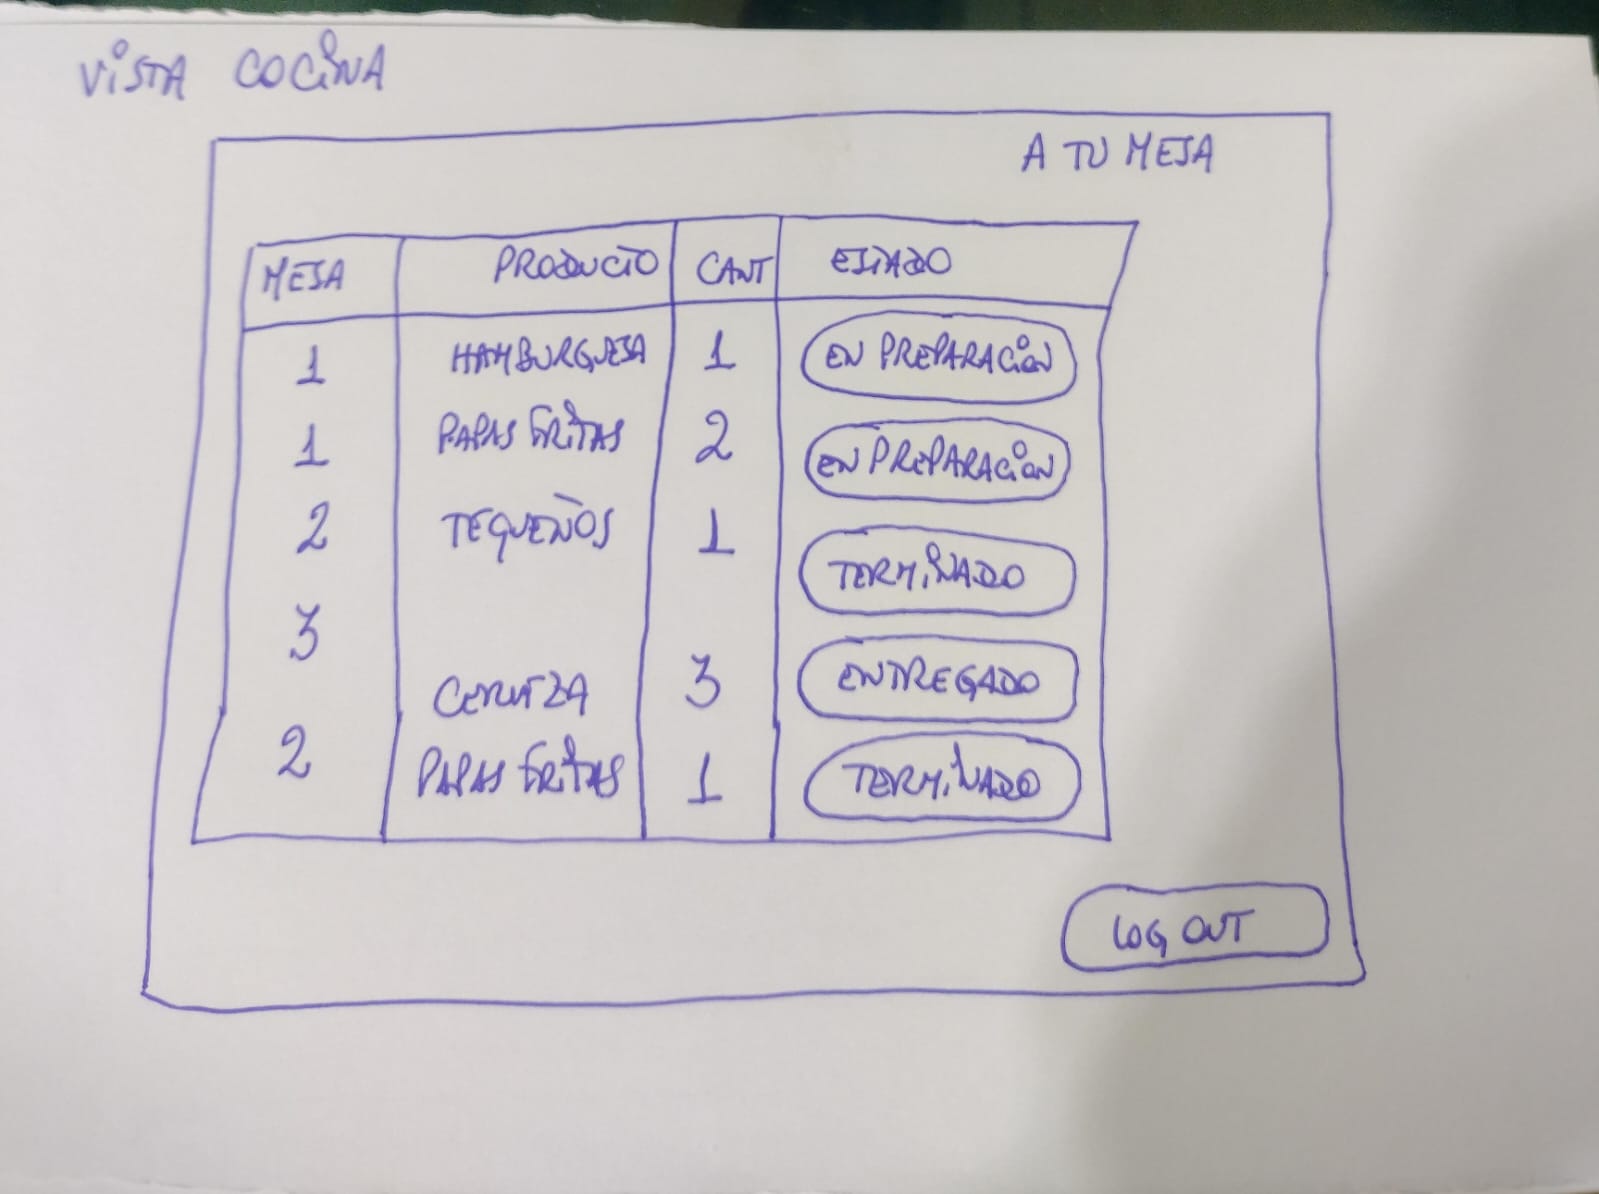 VISTA COCINA
A TU MESA
MESA PRODUCTO CANT ESTADO
1 HAMBURGUESA 1 EN PREPARACIÓN
1 PAPAS FRITAS 2 EN PREPARACIÓN
2 TEQUEÑOS 1 TERMINADO
3 CERVEZA 3 ENTREGADO
2 PAPAS FRITAS 1 TERMINADO
LOG OUT